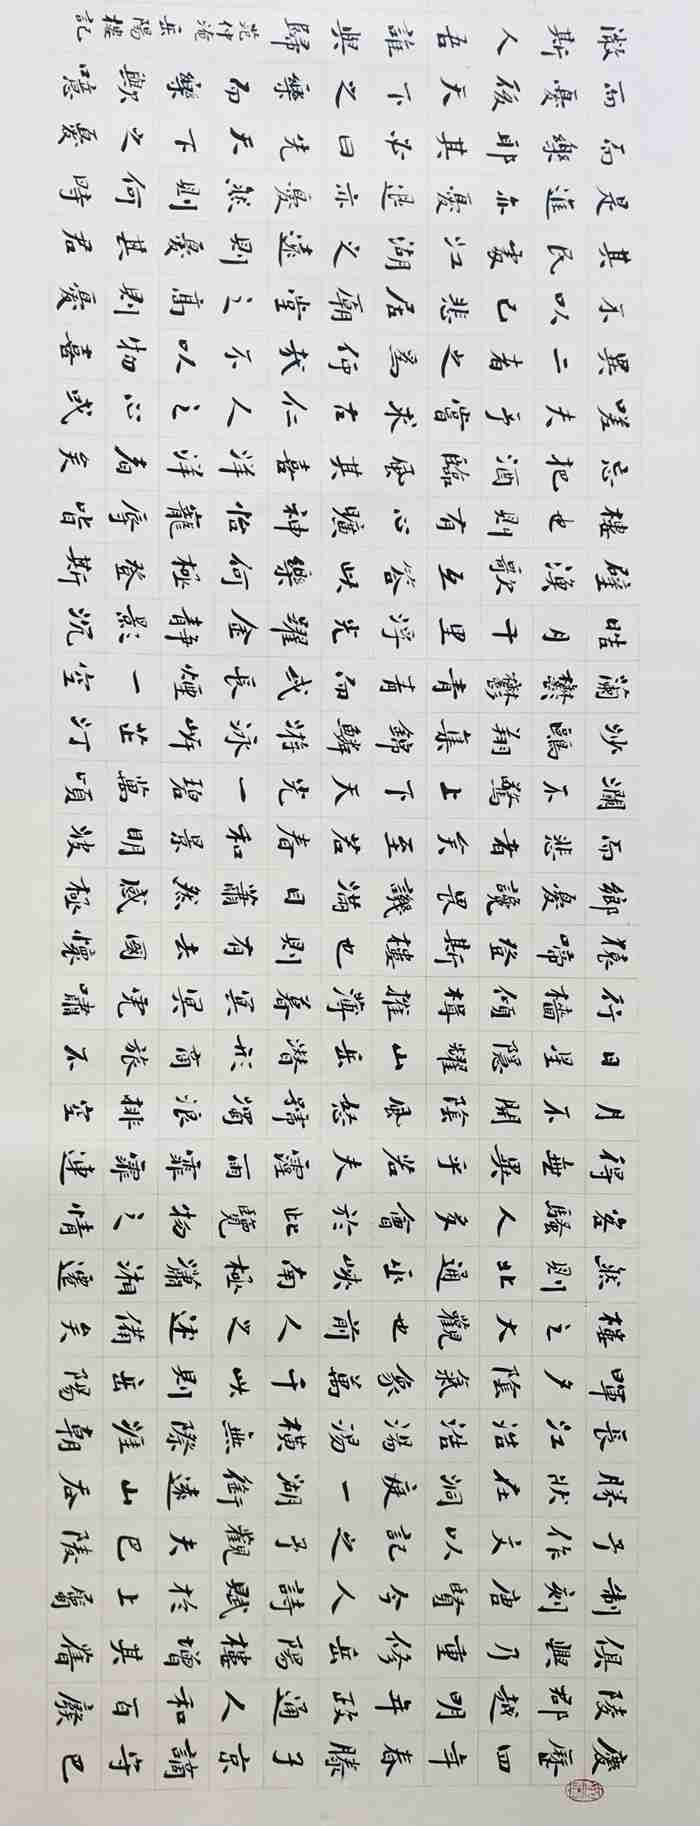 慶歷四年春滕子京謫守巴
陵郡越明年政通人和百廢
俱興乃重修岳陽樓增其舊
制刻唐賢今人詩賦於上屬
予作文以記之予觀夫巴陵
勝狀在洞庭一湖銜遠山吞
長江浩浩湯湯橫無際涯朝
暉夕陰氣象萬千此則岳陽
樓之大觀也前人之述備矣
然則北通巫峽南極瀟湘遷
客騷人多會於此覽物之情
得無異乎若夫霪雨霏霏連
月不開陰風怒號濁浪排空
日星隱耀山岳潛形商旅不
行檣傾楫摧薄暮冥冥虎嘯
猿啼登斯樓也則有去國懷
鄉憂讒畏譏滿目蕭然感極
而悲者矣至若春和景明波
瀾不驚上下天光一碧萬頃
沙鷗翔集錦鱗游泳岸芷汀
蘭鬱鬱青青而或長煙一空
皓月千里浮光耀金靜影沉
璧漁歌互答此樂何極登斯
樓也則有心曠神怡寵辱皆
忘把酒臨風其喜洋洋者矣
嗟夫予嘗求古仁人之心或
異二者之為何哉不以物喜
不以己悲居廟堂之高則憂
其民處江湖之遠則憂其君
是進亦憂退亦憂然則何時
而樂耶其必曰先天下之憂
而憂後天下之樂而樂歟噫
微斯人吾誰與歸
范仲淹岳陽樓記